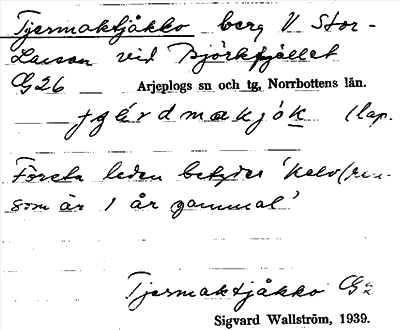 Tjermaktjåkko berg V Stor-
Laisan vid Björkfjället
G26 Arjeplogs sn och tg, Norrbottens län.
(lap.
Första leden betyder 'kalv (ren-
som är 1 år gammal'
Tjermaktjåkko G2
Sigvard Wallström, 1939.